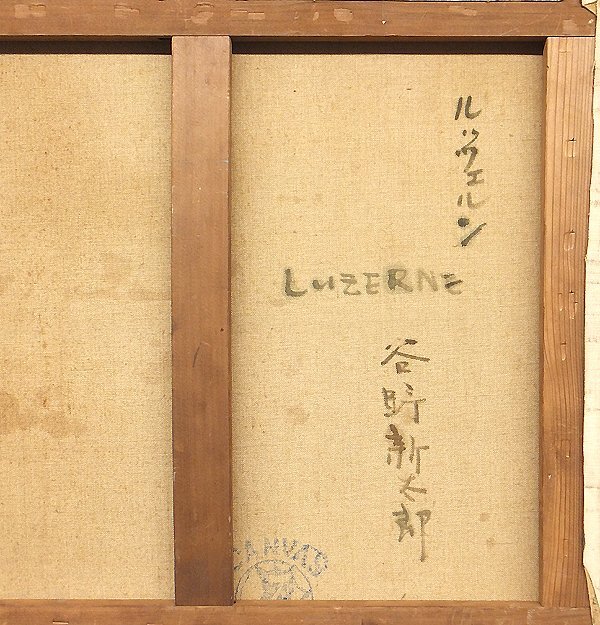 ルツヴェルン
LUZERNE
谷野新太郎
CANVAS